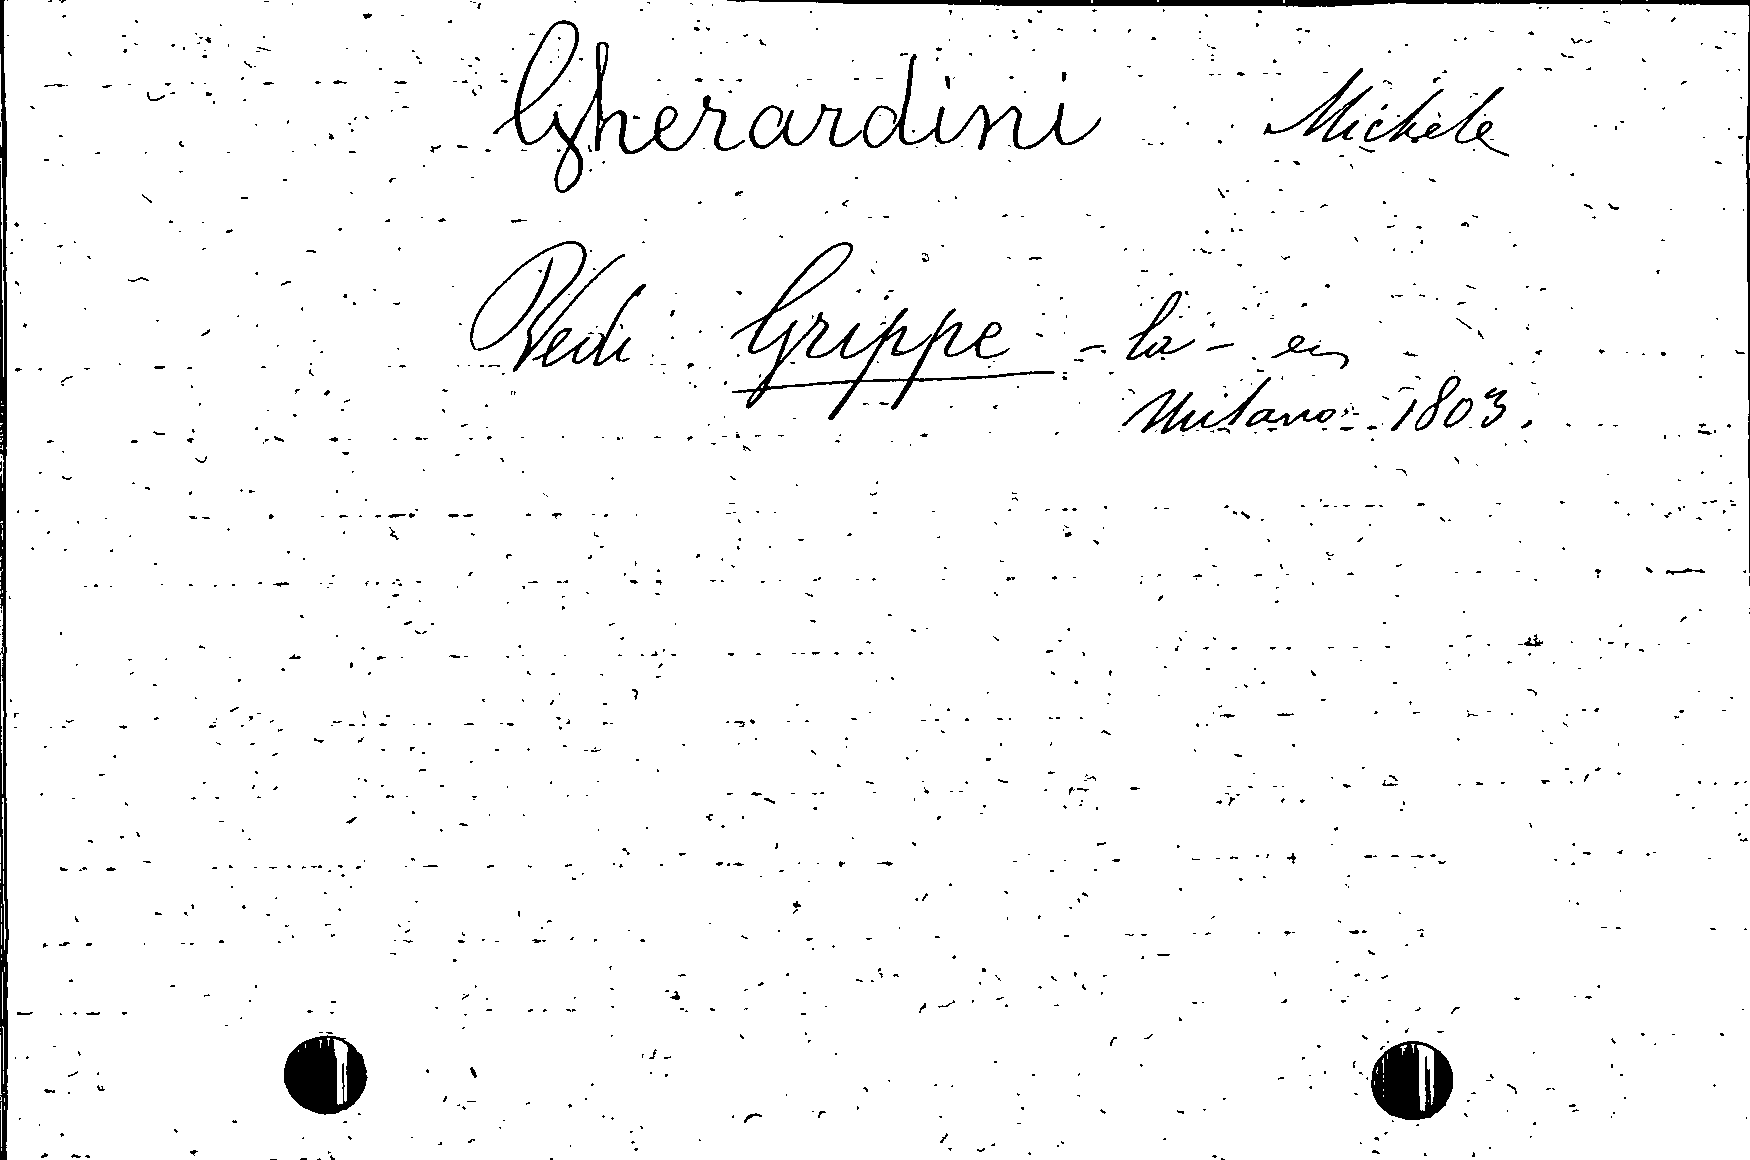 Gherardini Michele
Vedi Grippe - la - en
Milano - 1803.